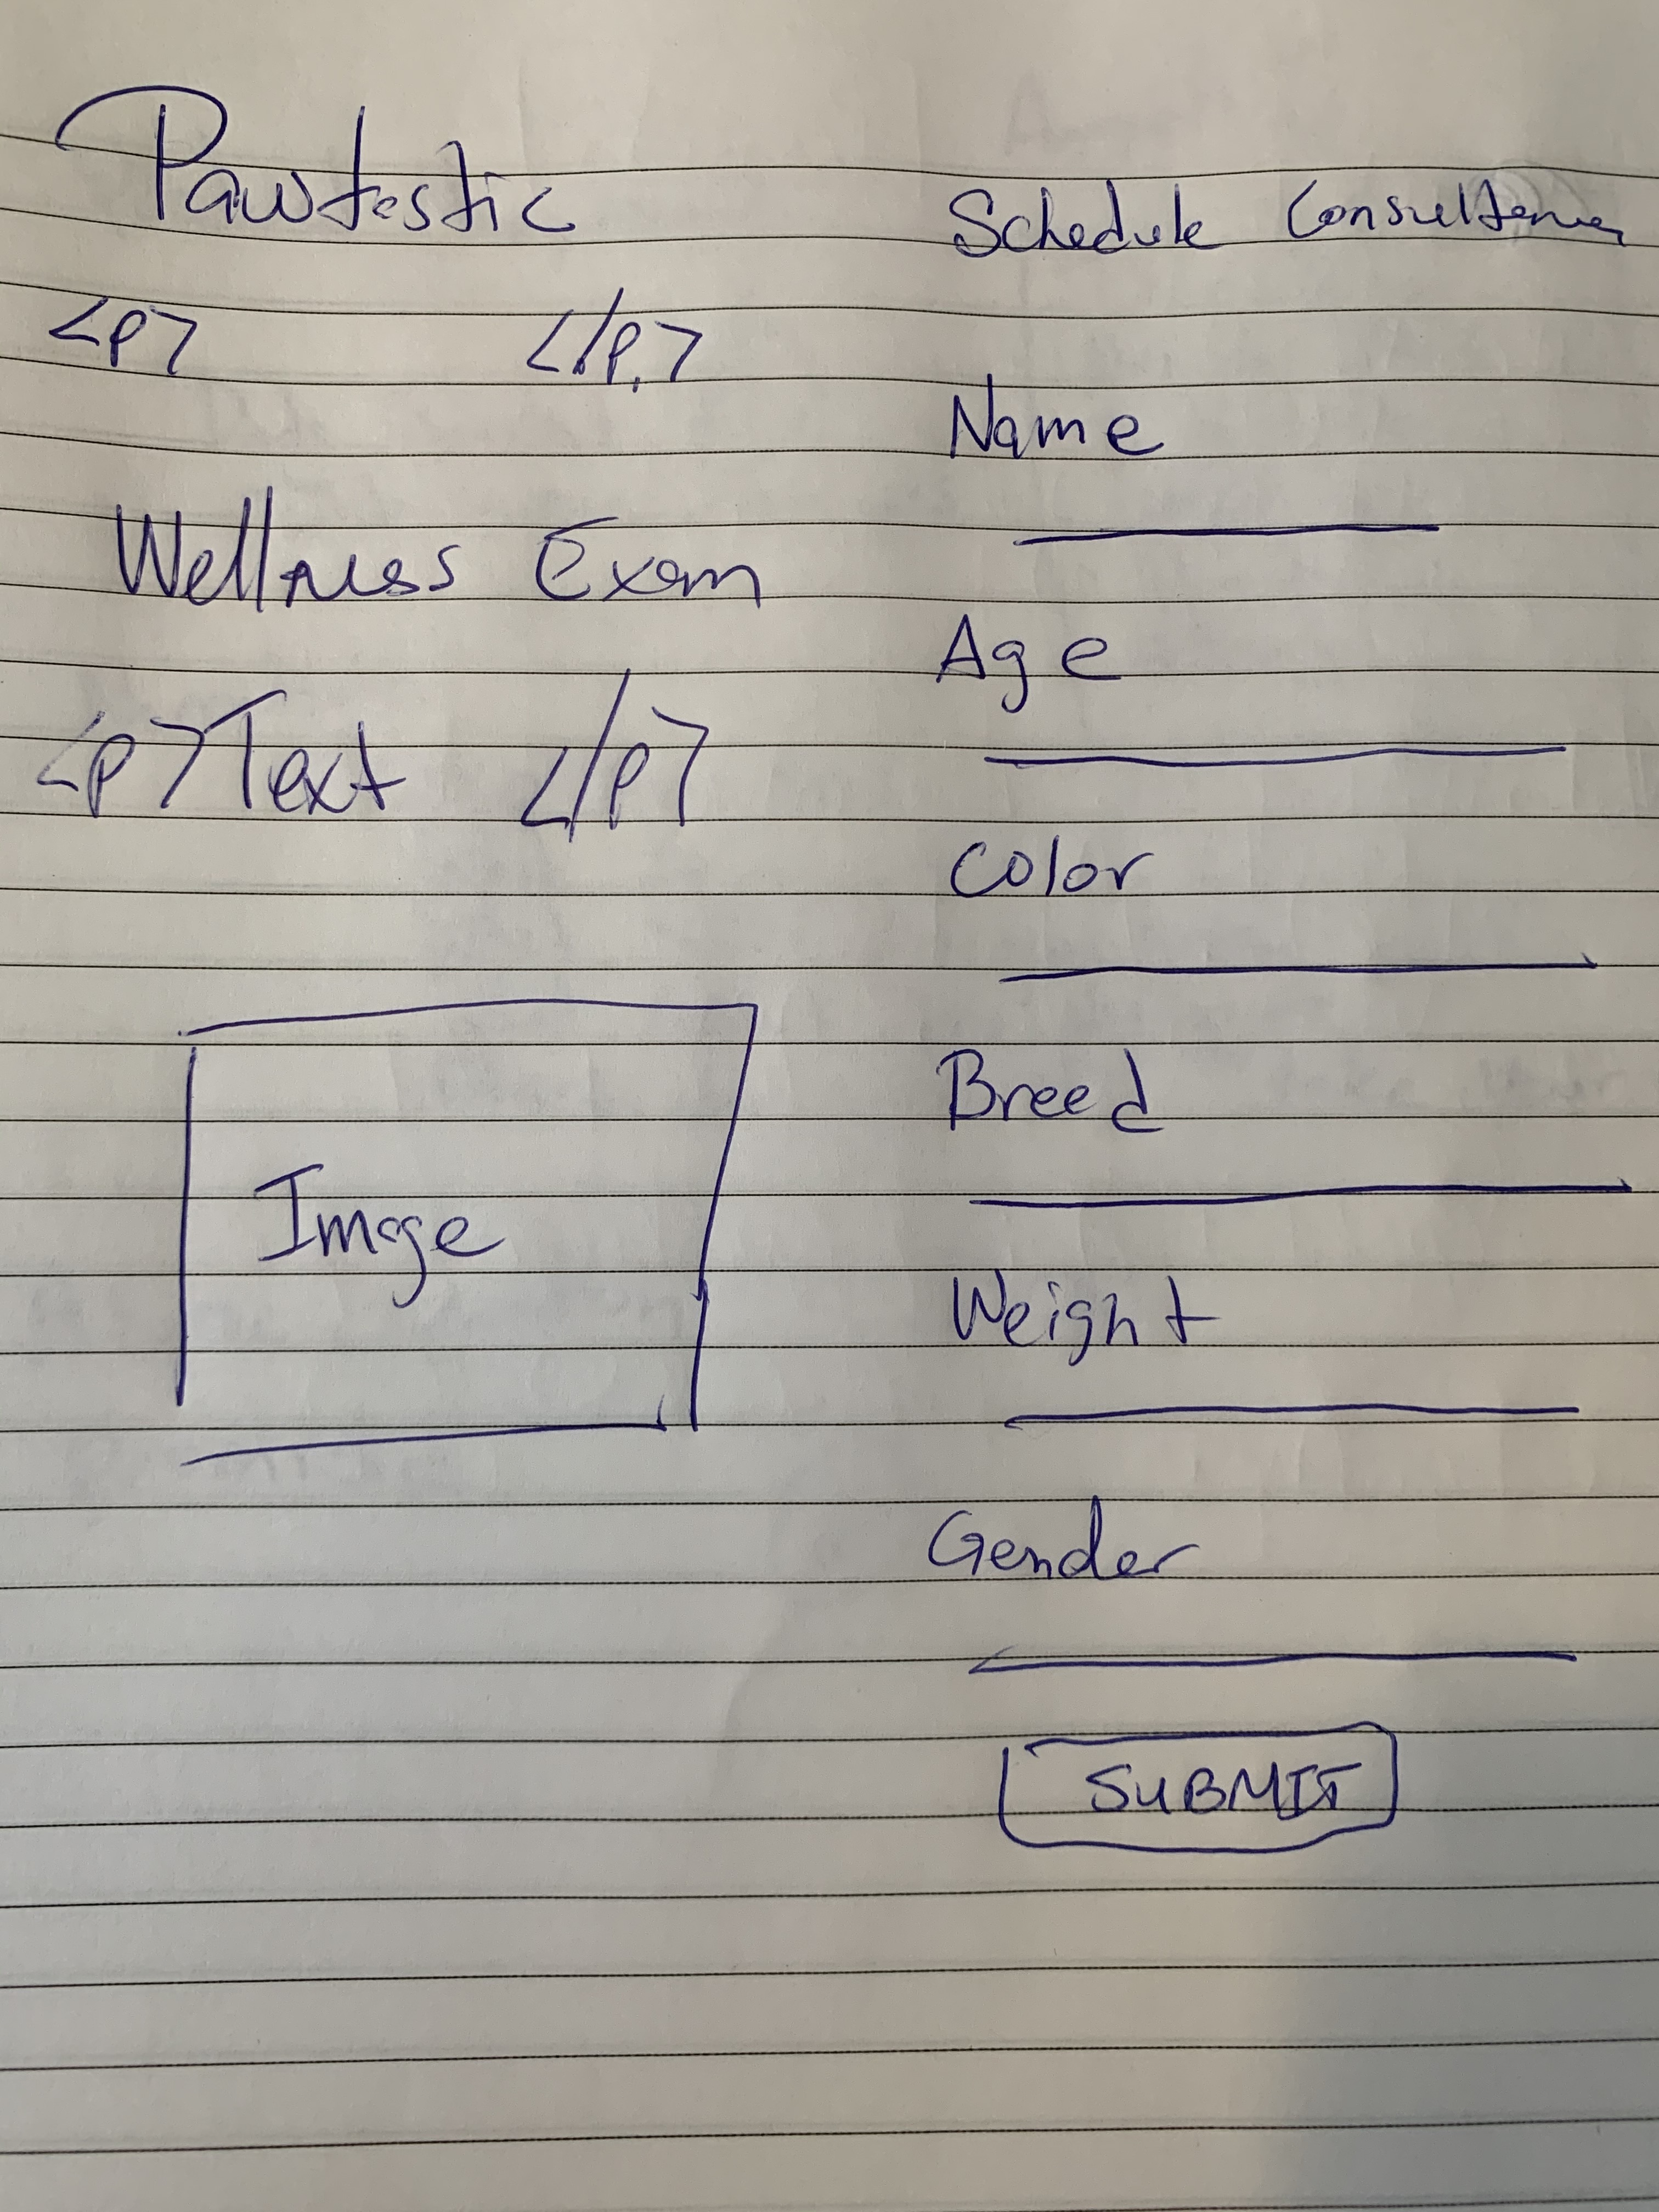 Pawtastic
<p> </p>
Wellness Exam
<p>Text </p>
Image
Schedule
Name
Age
Color
Breed
Weight
Gender
SUBMIT